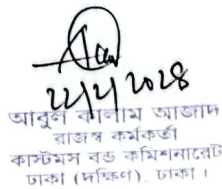 22/2/2024
আবুল কালাম আজাদ
রাজস্ব কর্মকর্তা
কাস্টমস বন্ড কমিশনারেট
ঢাকা (দক্ষিণ), ঢাকা।